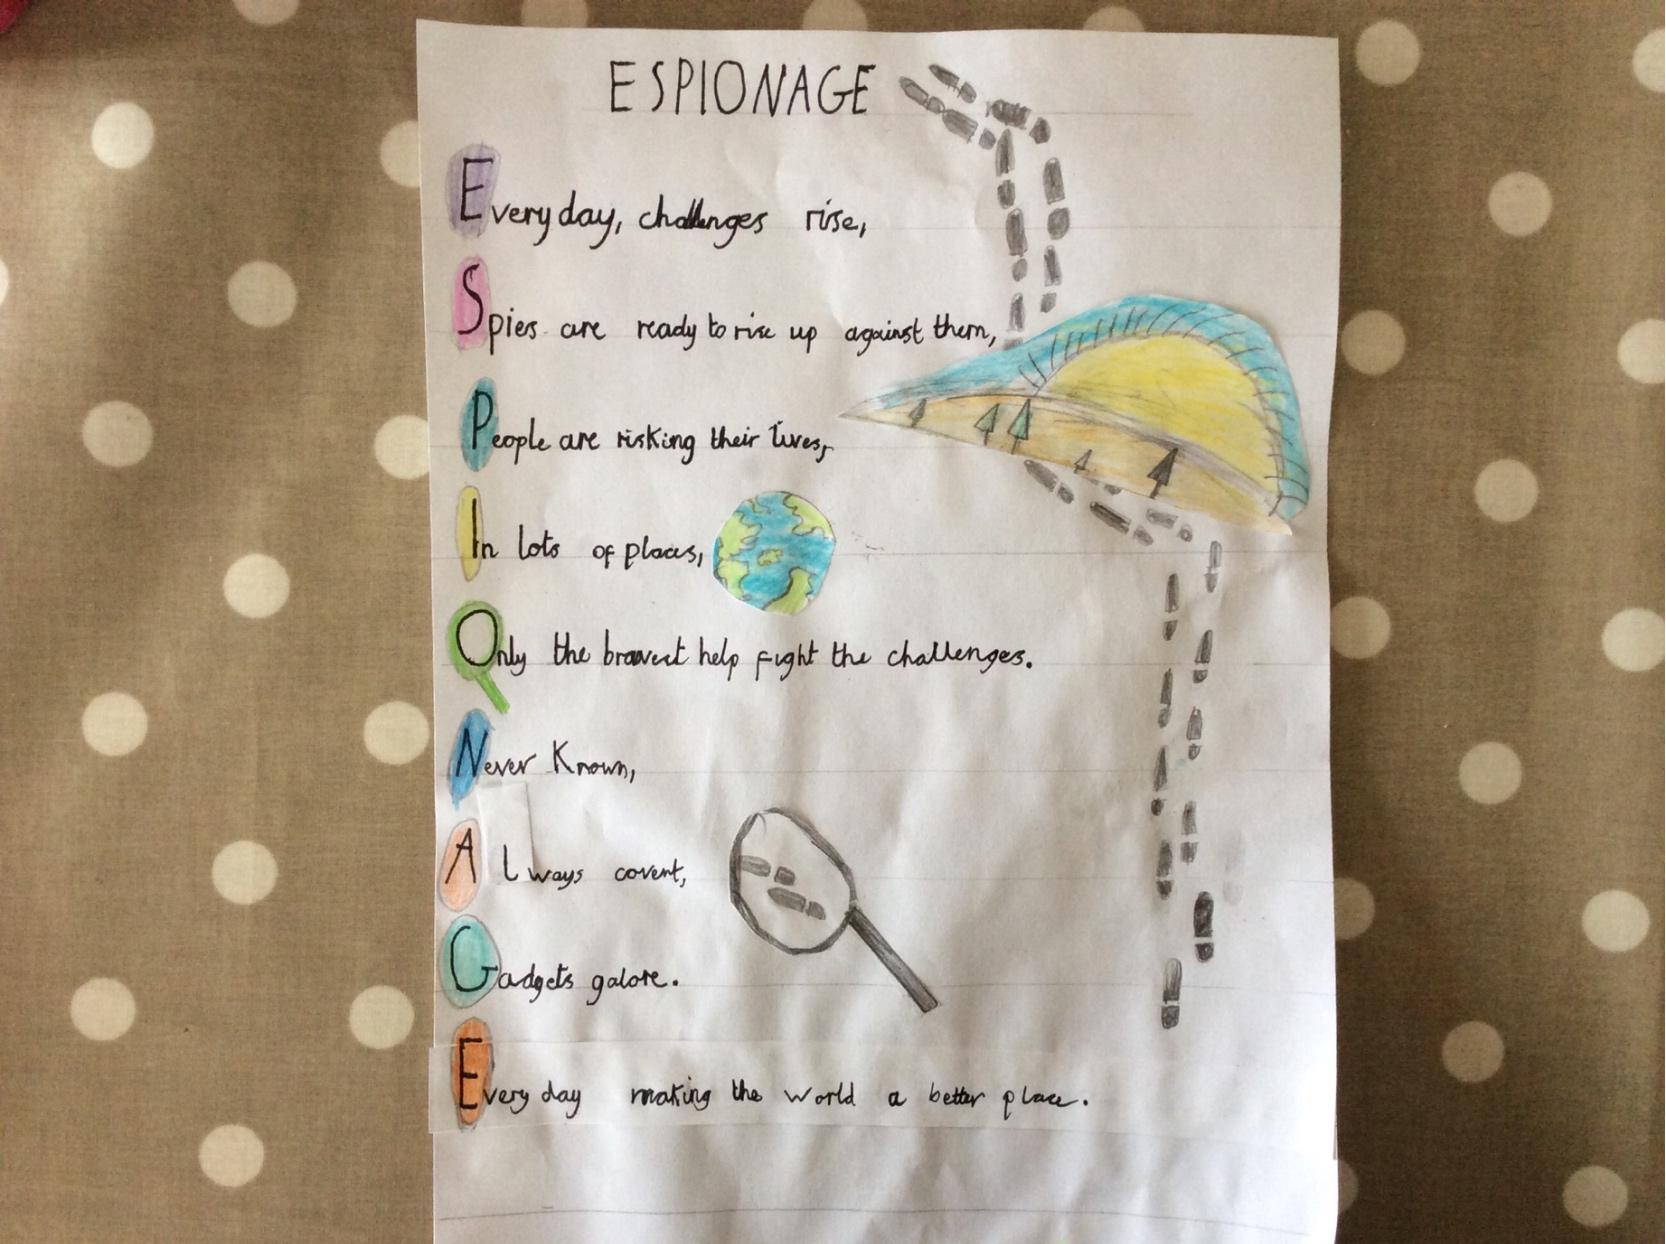 ESPIONAGE
Everyday, challenges rise,
Spies are ready to rise up against them,
People are risking their lives,
In lots of places,
Only the bravest help fight the challenges.
Never Known,
Always covert,
Gadgets galore.
Every day making the world a better place.